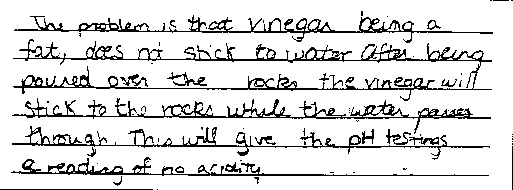 The problem is that vinegar being a
fat, does not stick to water After being
poured over the rocks the vinegar will
stick to the rocks while the water passes
through. This will give the pH testings
a reading of no acidity.